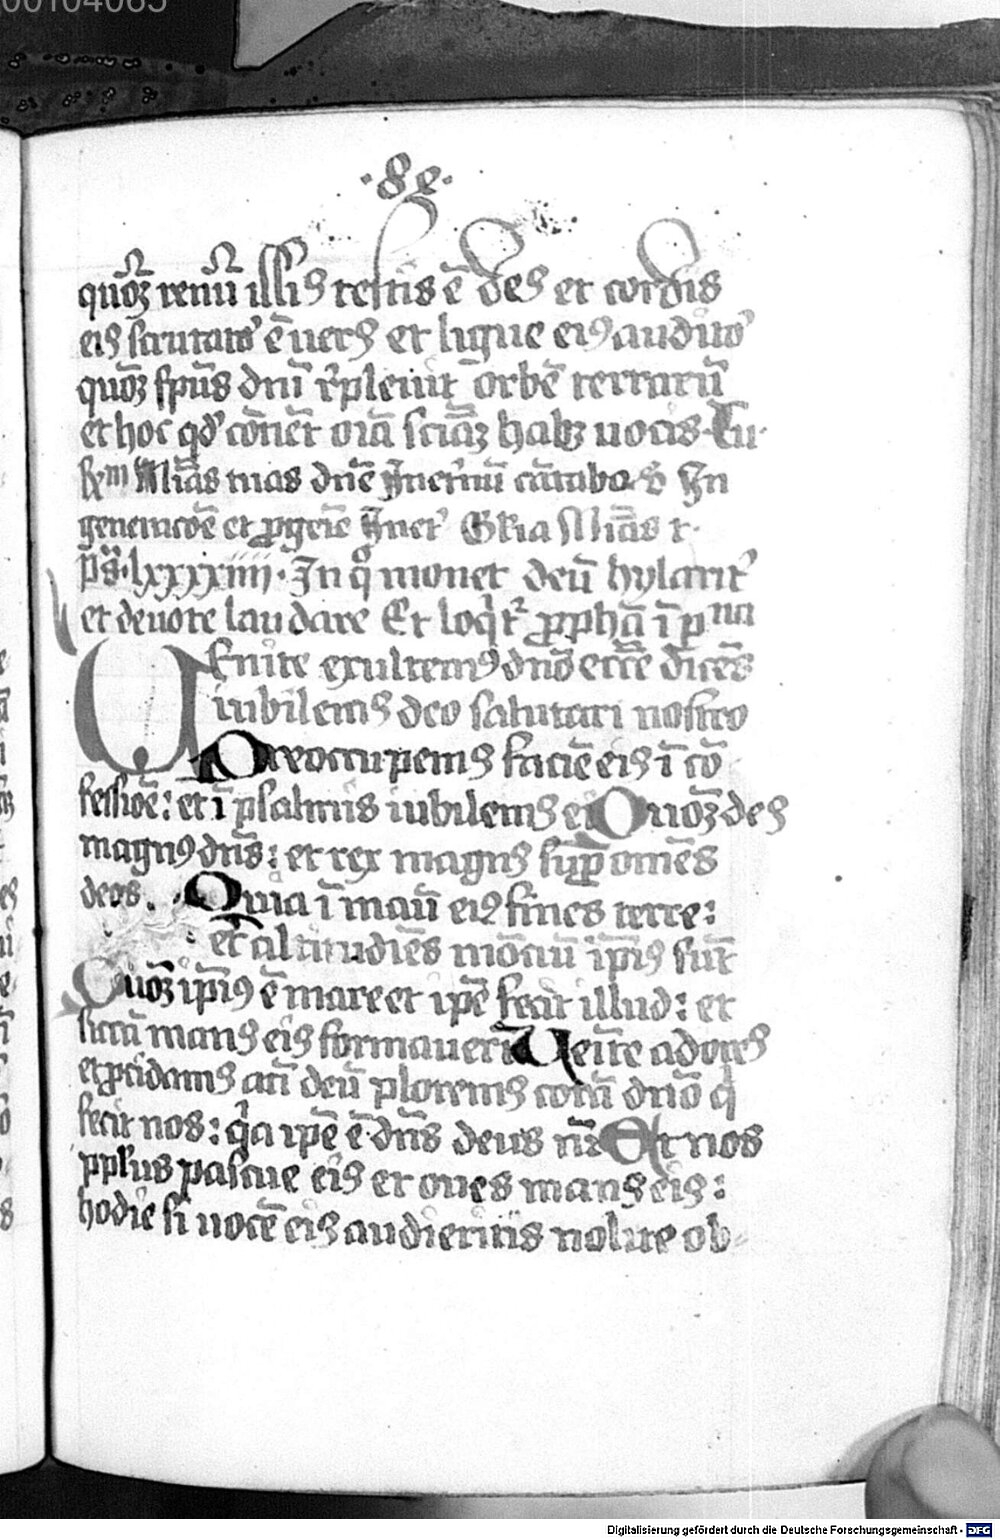 00104065
·8e·
quōȝ renū illiꝰ testis ē deꝰ et cordis
eiꝰ scrutator ē verꝰ et ligue eiꝰ auditor
quōȝ sp̄us dn̄i replevit orbē terrarū
et hoc qd' cōnēt oīa sciāȝ habȝ vocis
mīas tuas dn̄e
et
pš·lxxxxiiii· In q̊ monet deū hylarit'
et devote laudare Et loqit᷑ ꝓpha ī pma
VEnite exultemꝰ dn̄o ecce dicēs
iubilemꝰ deo salutari nostro
Preoccupemꝰ faciē eiꝰ ī cō
fessiōe: et ī psalmis iubilemꝰ ei Quōȝ deꝰ
magnꝰ dn̄s: et rex magnꝰ sup omēs
deos. Quia ī manū eiꝰ fines terre:
et altitudiēs mōtiū ip̄iꝰ sūt
Quōȝ ip̄iꝰ ē mare et ip̄e fecit illud: et
siccā manꝰ eiꝰ formaverūt Veīte adoremꝰ
et ꝓcidamꝰ ān deū ploremꝰ corā dn̄o q̇
fecit nos: q̇a ip̄e ē dn̄s deus nr̄ Et nos
pplus pascue eiꝰ et oves manꝰ eiꝰ:
hodie si vocē eiꝰ audieritis nolite ob
Digitalisierung gefördert durch die Deutsche Forschungsgemeinschaft - DFG